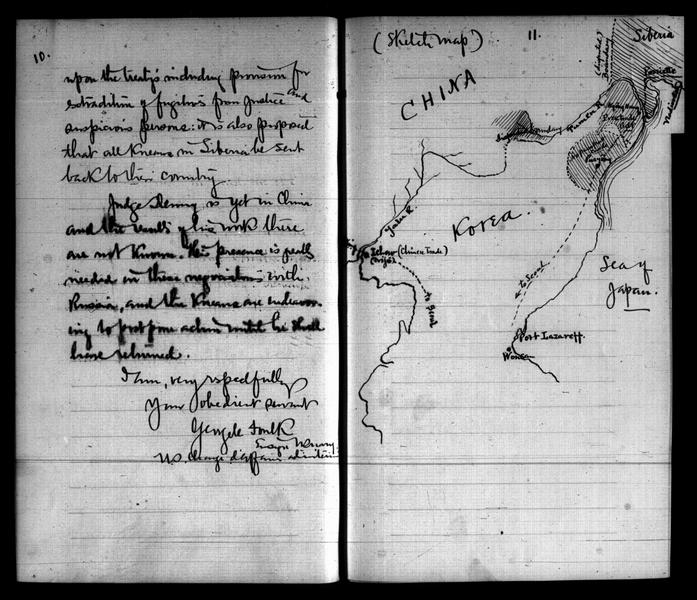 10.
upon the treaty's including provision for
extradition of fugitives from justice and
suspicious persons: it is also proposed
that all Koreans in Siberia be sent
back to their country.
Judge Denny is yet in China
and the results of his work there
are not known. His presence is greatly
needed in these negotiations with
Russia, and the Koreans are endeavor-
ing to postpone action until he shall
have returned.
I am, very respectfully
Your obedient servant
George C. Foulk
Ensign U.S. Navy
U.S. Chargé d'affaires ad interim
(Sketch map)
11.
Siberia
(disputed) Boundary
CHINA
Possiette
Disputed boundary
Tumen R.
Yalu R.
Korea.
(Chinese Trade)
to Seoul
to Seoul
Sea of
Japan.
Port Lazareff.
Wonsan